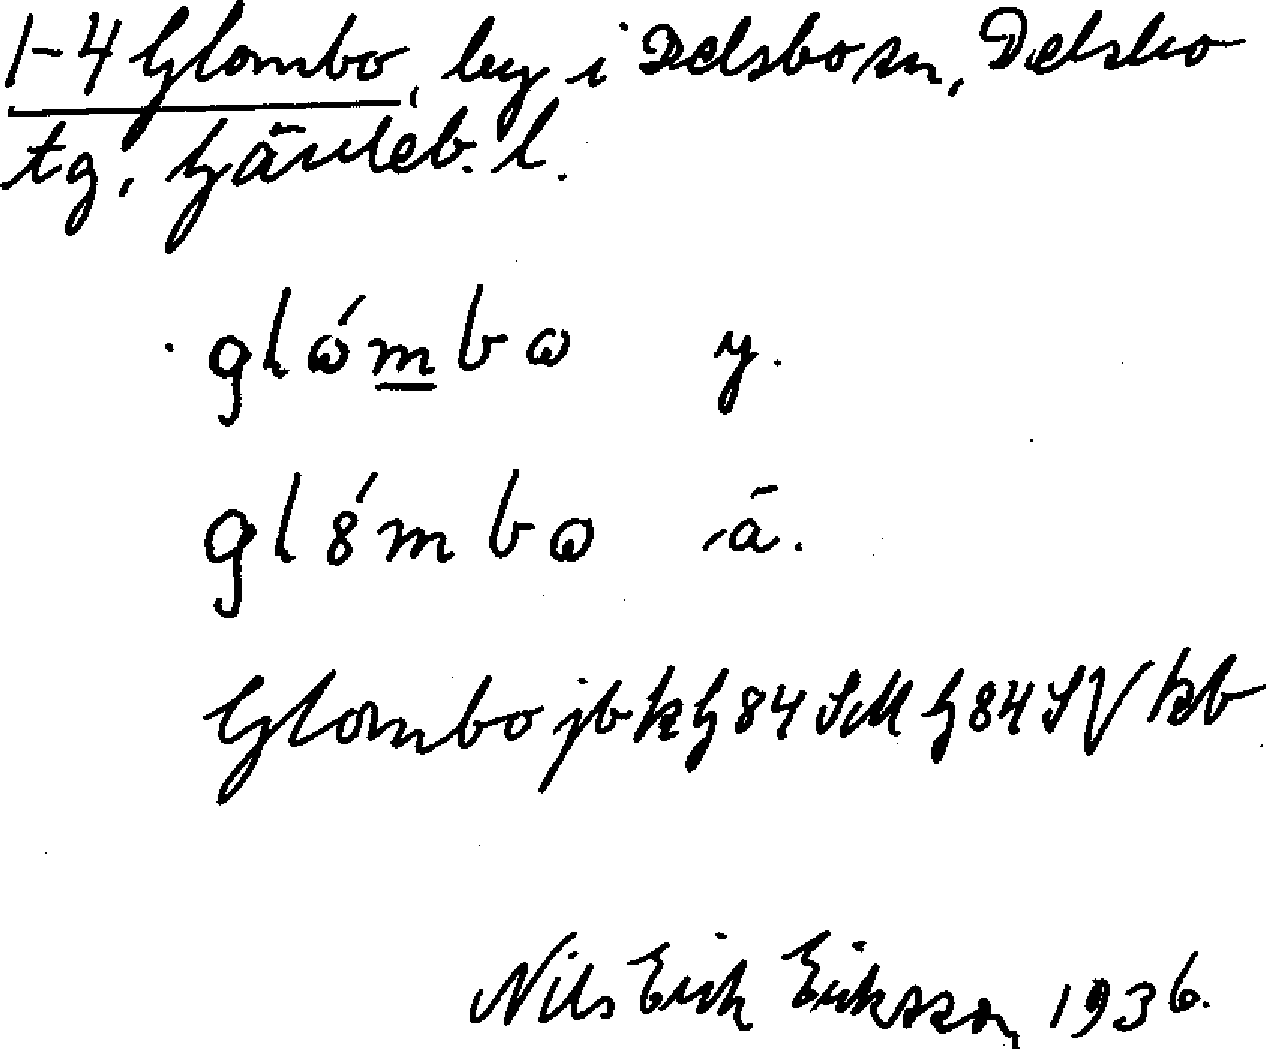 1-4 Glombo, by i Delsbo sn, Delsbo
tg, Gävleb. l.
glómbo y.
gl8́mbo ä.
Glombo jb k g 84 SM g 84 SV kb
Nils Erik Eriksson, 1936.